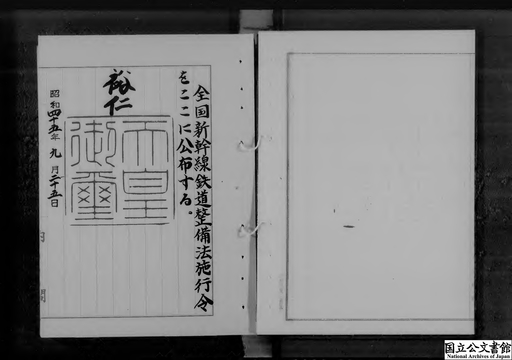 全国新幹線鉄道整備法施行令
をここに公布する。
裕仁
天皇
御璽
昭和四十五年九月二十五日
国立公文書館
National Archives of Japan